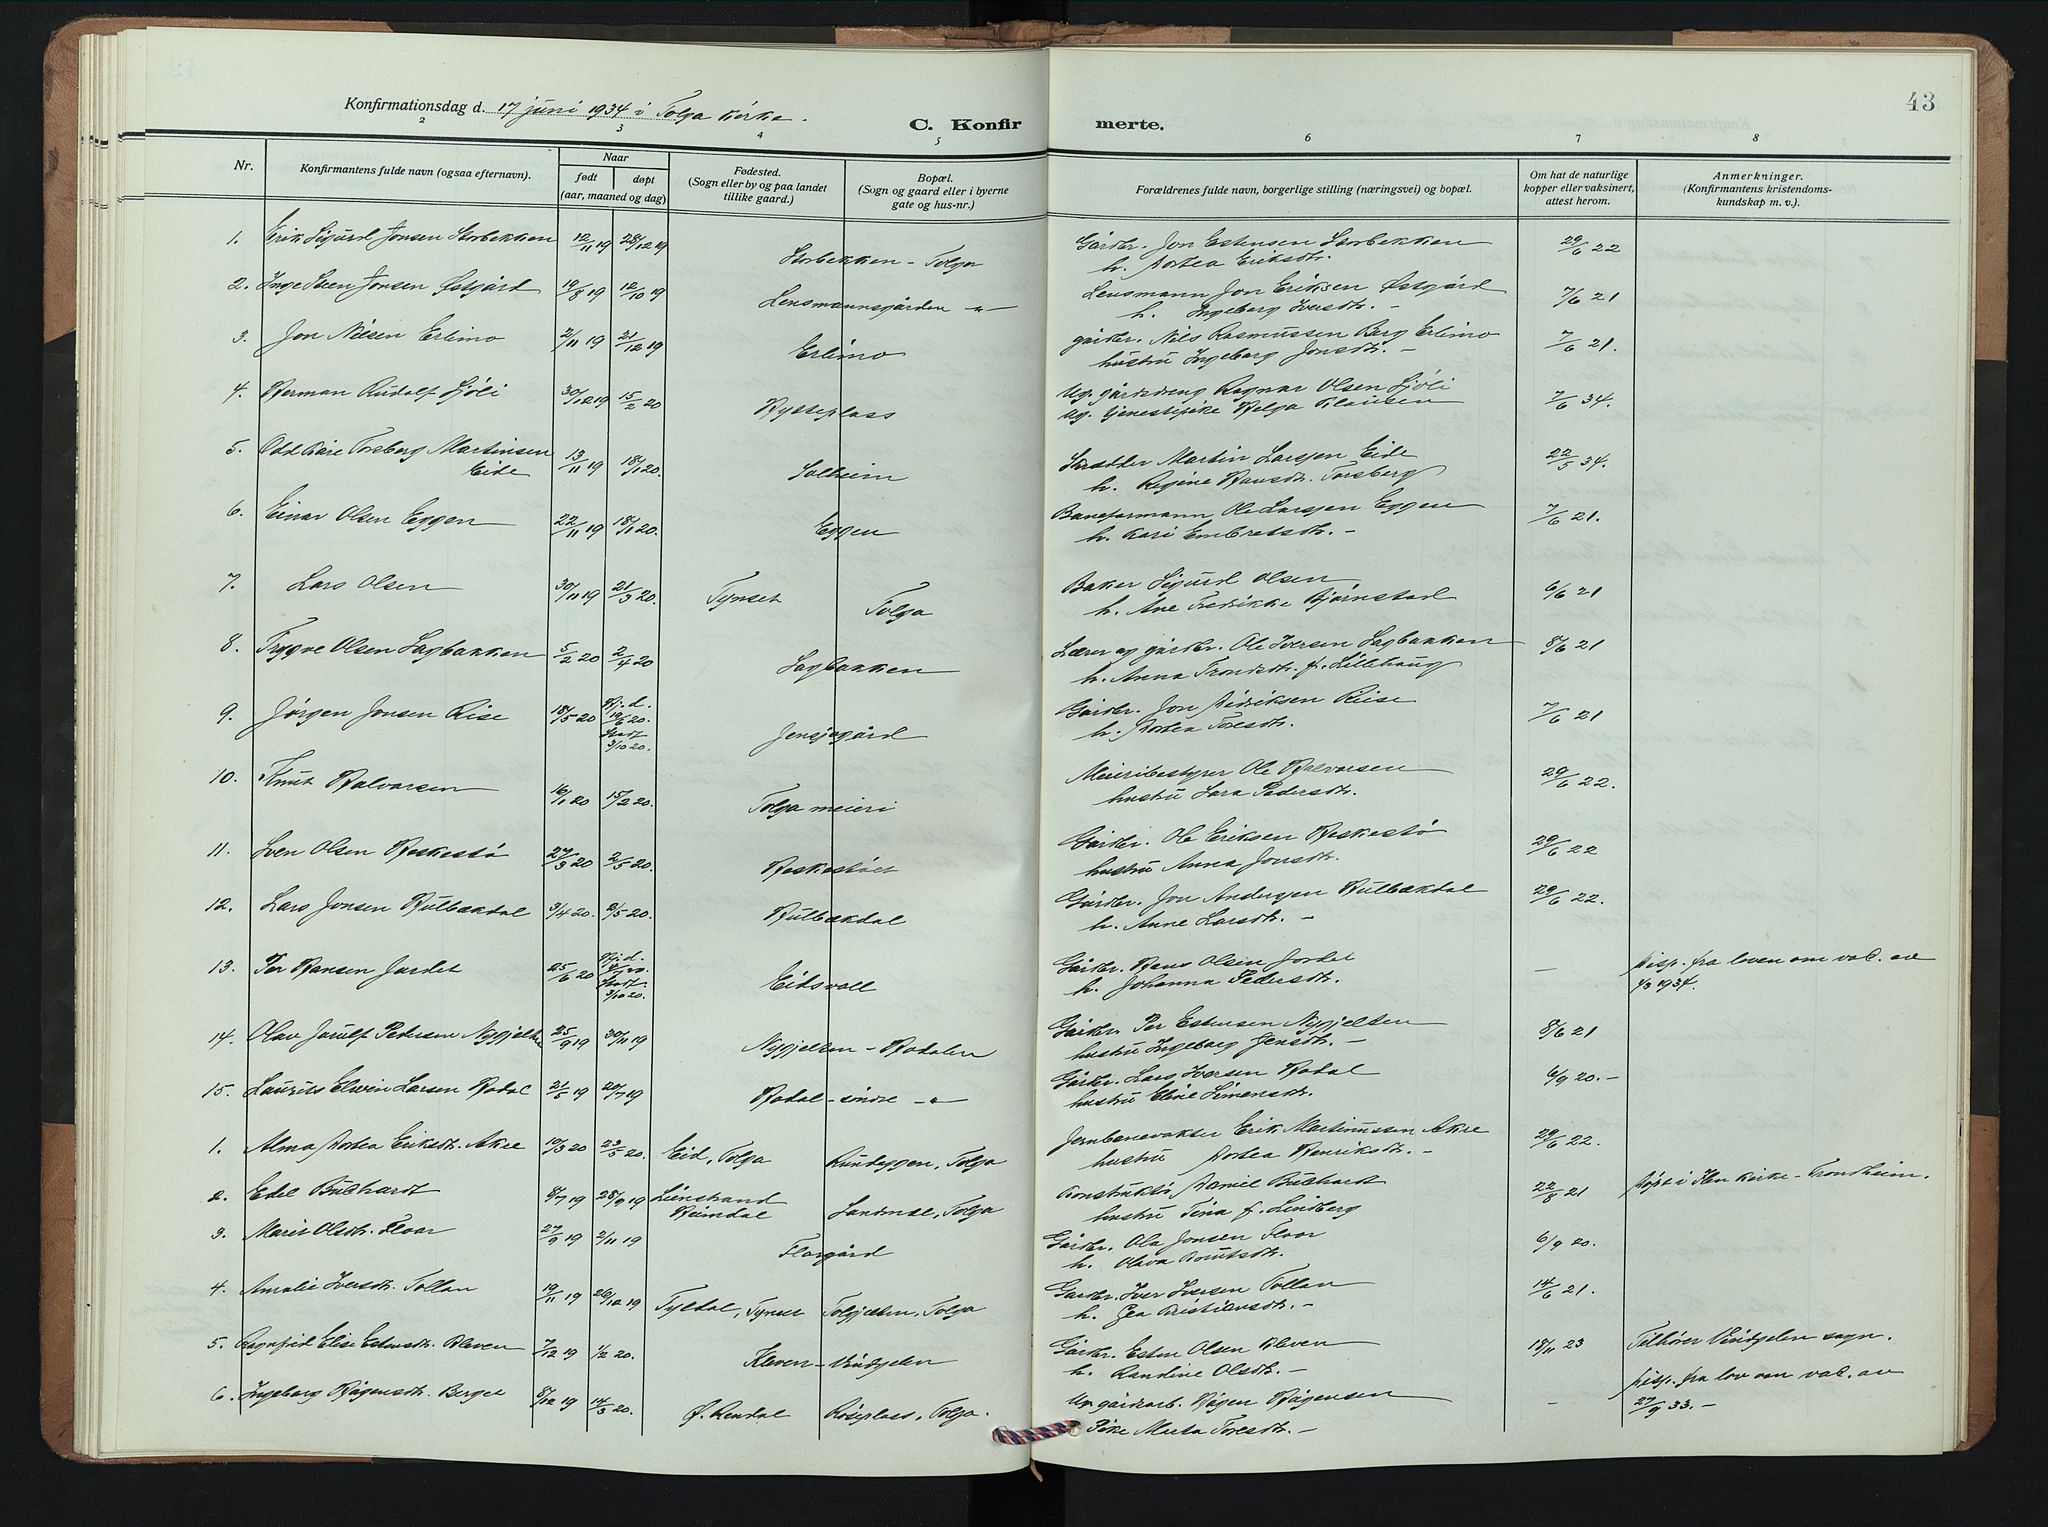 43
Konfirmationsdag d. 17 juni 1934 i Tolga kirke.
C. Konfirmerte.
2 3 4 5 6 7 8
Nr. Konfirmantens fulde navn (ogsaa efternavn). Naar født døpt (aar, maaned og dag) Fødested. (Sogn eller by og paa landet tillike gaard.) Bopæl. (Sogn og gaard eller i byerne gate og hus-nr.) Forældrenes fulde navn, borgerlige stilling (næringsvei) og bopæl. Om hat de naturlige kopper eller vaksinert, attest herom. Anmerkninger. (Konfirmantens kristendoms-kundskap m. v.).
1. Erik Sigurd Jonsen Storbekken 12/11 19 28/12 19 Storbekken - Tolga Gårdbr. Jon Estensen Storbekken 29/6 22
h. Dortea Eriksdtr.
2. Inge Steen Jonsen Østgård 19/8 19 12/10 19 Lensmannsgården -"- Lensmann Jon Eriksen Østgård 7/6 21
h. Ingeborg Iversdtr. -
3. Jon Nilsen Erlimo 2/11 19 21/12 19 Erlimo gårdbr. Nils Rasmussen Berg Erlimo 7/6 21.
hustru Ingeborg Jonsdtr. -
4. Herman Rudolf Sjøli 30/12 19 15/2 20 Hytteplass Ug. gårdsdreng Ragnar Olsen Sjøli 7/6 34.
Ug. tjenestepike Helga Klausen
5. Odd Kåre Torsberg Martinsen Eide 13/11 19 18/1 20. Solheim Skredder Martin Larsen Eide 22/5 34.
h. Regine Hansdtr. Torsberg
6. Einar Olsen Eggen 22/11 19 18/1 20. Eggen Baneformann Ole Larsen Eggen 7/6 21.
h. Kari Embretsdtr. -
7. Lars Olsen 30/11 19 21/3 20. Tynset Tolga Baker Sigurd Olsen 6/6 21
h. Ane Fredrikke Bjørnstad
8. Trygve Olsen Lagbakken 5/2 20 2/4 20 Lagbakken Lærer og gårdbr. Ole Iversen Lagbakken 8/6 21
h. Anna Trondsdtr. f. Lillehaug
9. Jørgen Jonsen Riise 18/5 20 Hj. d. 19/6 20. Stadf. 3/10 20. Jensjogård Gårdbr. Jon Didriksen Riise 7/6 21
h. Dortea Toresdtr.
10. Knut Halvorsen 16/1 20 15/2 20. Tolga meieri Meieribestyrer Ole Halvorsen 29/6 22.
hustru Sara Pedersdtr.
11. Sven Olsen Heskestø 27/3 20 2/5 20. Heskestøet Gårdbr. Ole Eriksen Heskestø 29/6 22
hustru Anna Jonsdtr.
12. Lars Jonsen Hulbækdal 3/4 20. 2/5 20. Hulbækdal Gårdbr. Jon Andersen Hulbækdal 29/6 22.
h. Anne Larsdtr. -
13. Per Hansen Jordet 25/6 20 Hj. d. Stadf. 3/10 20. Eidsvoll Gårdbr. Hans Olsen Jordet - Disp. fra loven om vak. av
h. Johanna Pedersdtr. 1/3 1934.
14. Olav Jarulf Pedersen Nygjelten 25/9 19 30/11 19 Nygjelten - Hodalen Gårdbr. Per Estensen Nygjelten 8/6 21
hustru Ingeborg Jensdtr. -
15. Laurits Edwin Larsen Hodal 21/5 19 20/7 19 Hodal - søndre -"- Gårdbr. Lars Iversen Hodal 6/9 20. -
hustru Eline Simensdtr.
1. Alma Dortea Eriksdtr. Åkre 10/3 20 23/5 20. Eid, Tolga Rundeggen, Tolga Jernbanevakter Erik Martinussen Åkre 29/6 22.
hustru Dortea Henriksdtr. -
2. Edel Buchardt 8/7 19 28/9 19 Leinstrand Heimdal Landmæl, Tolga Konstruktø Daniel Buchardt 22/8 21 Døpt i Ilen kirke - Trondheim.
hustru Tina f. Lindberg
3. Marit Olsdtr. Floor 27/9 19 2/11 19 Florgård Gårdbr. Ola Jonsen Floor 6/9 20.
h. Olava Knutsdtr.
4. Amalie Iversdtr. Tollan 19/11 19 26/12 19 Tyldal, Tynset Tolgjelten, Tolga Gårdbr. Iver Iversen Tollan 14/6 21.
h. Gea Kristiansdtr. -
5. Ragnfrid Elise Estensdtr. Kleven 7/12 19 1/2 20. Kleven - Vindgelen Gårdbr. Esten Olsen Kleven 18/11 23 Tilhører Vindgelen sogn.
h. Randine Olsdtr. -
6. Ingeborg Hågensdtr. Berget 8/12 19 14/3 20. Ø. Rendal Røseplass, Tolga. Ug. gårdsarb. Hågen Hågensen - Disp. fra lov om vak. av
Pike Marta Toresdtr. - 27/9 33. -